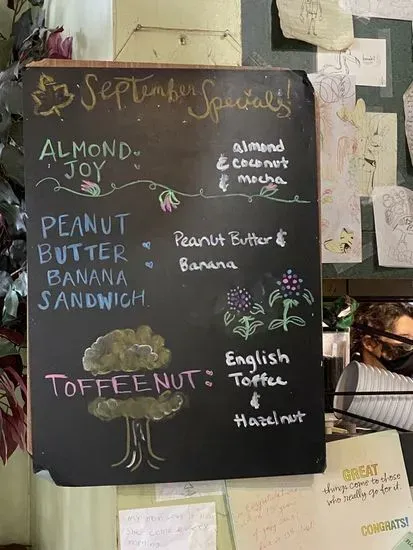 September Specials!
ALMOND:
JOY
almond
& coconut
& mocha
PEANUT
BUTTER
BANANA
SANDWICH
Peanut Butter &
Banana
TOFFEENUT:
English
Toffee
&
Hazelnut
GREAT
things come to those
who really go for it.
CONGRATS!